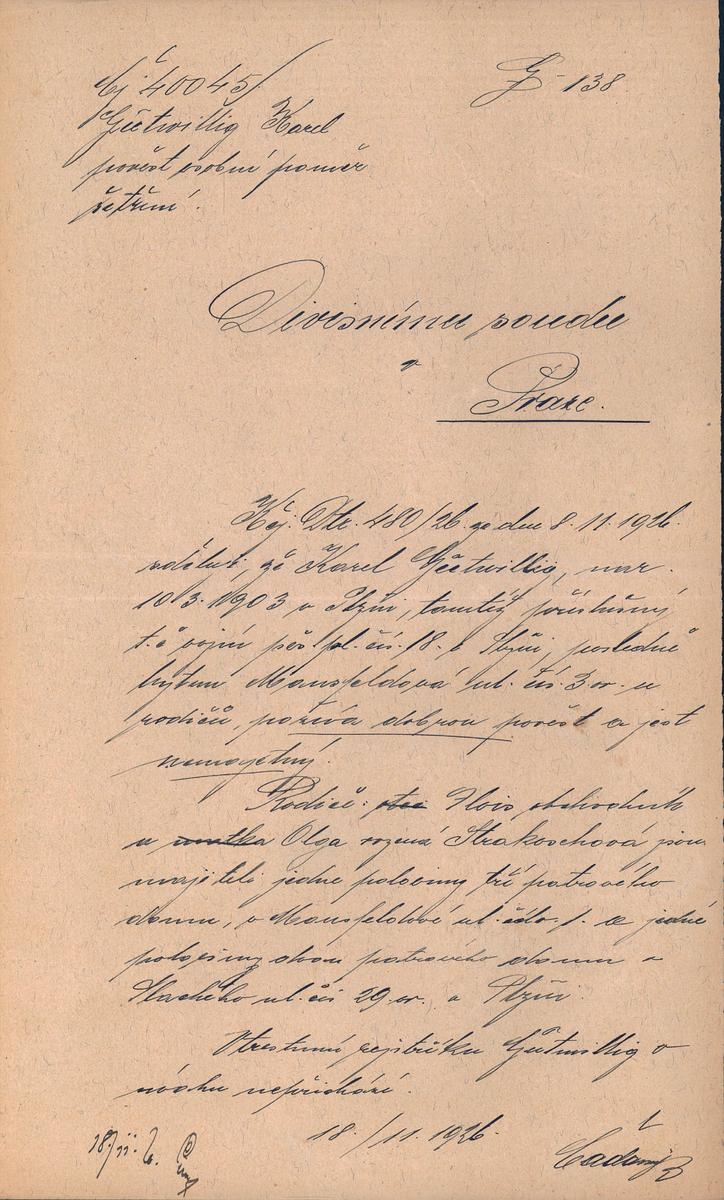 Čj. 40045/ J - 138
Gütwillig Karel
pověst osobní poměr
šetření.
Divisnímu soudu
v
Praze.
K čj. Dtr. 480/26 ze dne 8.11.1926.
sděluji, že Karel Gütwillig, nar.
10.3.1903 v Plzni, tamtéž příslušný
t.č. vojín pěš. pl. čís. 18. v Plzni, posledně
bytem Mansfeldova ul. čís. 3 u
rodičů, požívá dobrou pověst a jest
nemajetný.
Rodiče: otec Alois, obchodník
a matka Olga rozená Strakoschová jsou
majiteli jedné poloviny tří patrového
domu, v Mansfeldové ul. a jedné
poloviny dvou patrového domu v
ul. čís 29 or. v Plzni.
V trestním rejstříku Gütwillig v
úvahu nepřichází.
18./11. 1926.
18/11. 26.